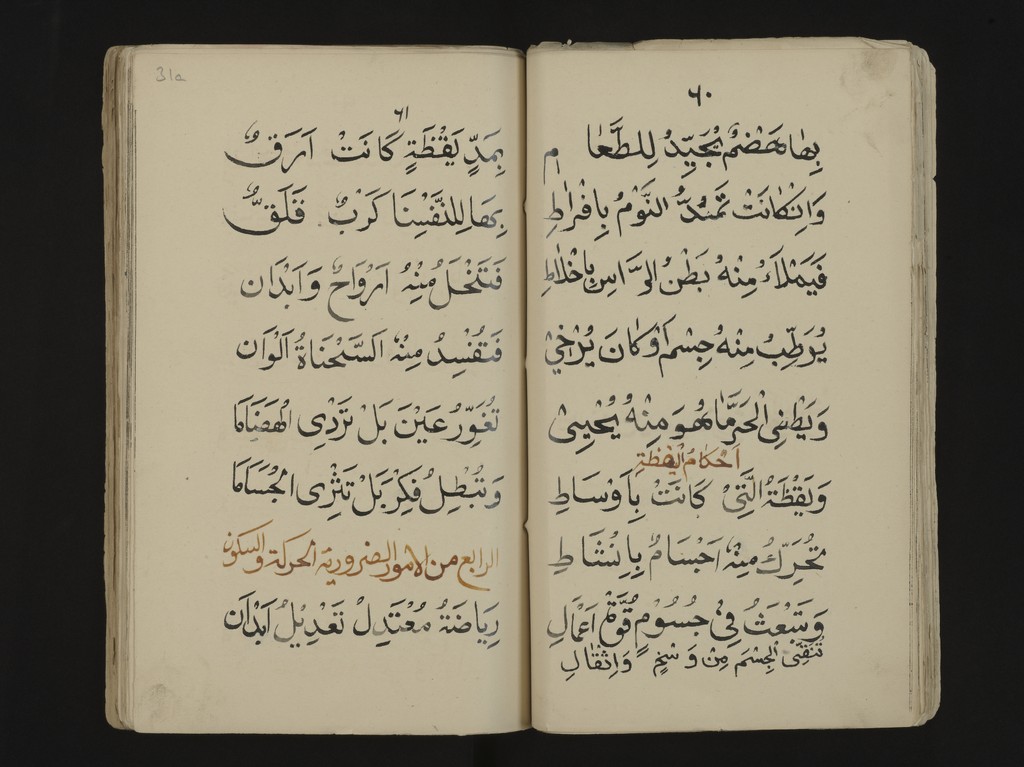 ٦٠
بِهَا هَضْمٌ يُجَيِّدُ لِلطَّعَامِ
وَاِنْكَانَتْ تَمُدُّ النَّوْمُ بِاِفْرَاطِ
فَيَمْلَاءُ مِنْهُ بَطْنُ الرَّاسِ بِاَخْلَاطِ
يُرَطِّبُ مِنْهُ جِسْمَ اَوْ كَانَ يُرْخِيْ
وَيَطْفِى الْحَرَّ مَا هُوَ مِنْهُ يُحْيِىْ
اَحْكَامُ الْيَقْظَةِ
وَيَقْظَةُ الَّتِىْ كَانَتْ بِاَوْسَاطِ
تُحَرِّكُ مِنْهُ اَجْسَامٌ بِاِنْشَاطِ
وَتَبْعَثُ فِىْ جُسُوْمٍ قُوَّةُ اَعْمَالِ
تُنَقِّى الْجِسْمَ مِنْ وَسْخٍ وَاِثْقَالِ
31a
٦١
بِمَدِّ يَقْظَةٍ كَانَتْ اَرَقٌ
بِهَا لِلنَّفْسِنَا كَرْبٌ قَلَقٌ
فَتَنْحَلُ مُنْهُ اَرْوَاحٌ وَاَبْدَان
فَتُفْسِدُ مِنْهُ اَلسَّحْنَاةُ اَلْوَان
تُغَوِّرُ عَيْنَ بَلْ تَرْدِى الْهَضَامَا
وَتُبْطِلُ فِكْرَ بَلْ تَتْرِى الْجُسَامَا
الرابع من الامور الضرورية الحركة والسكون
رِيَاضَةُ مُعْتَدِلْ تَعْدِيْلُ اَبْدَان